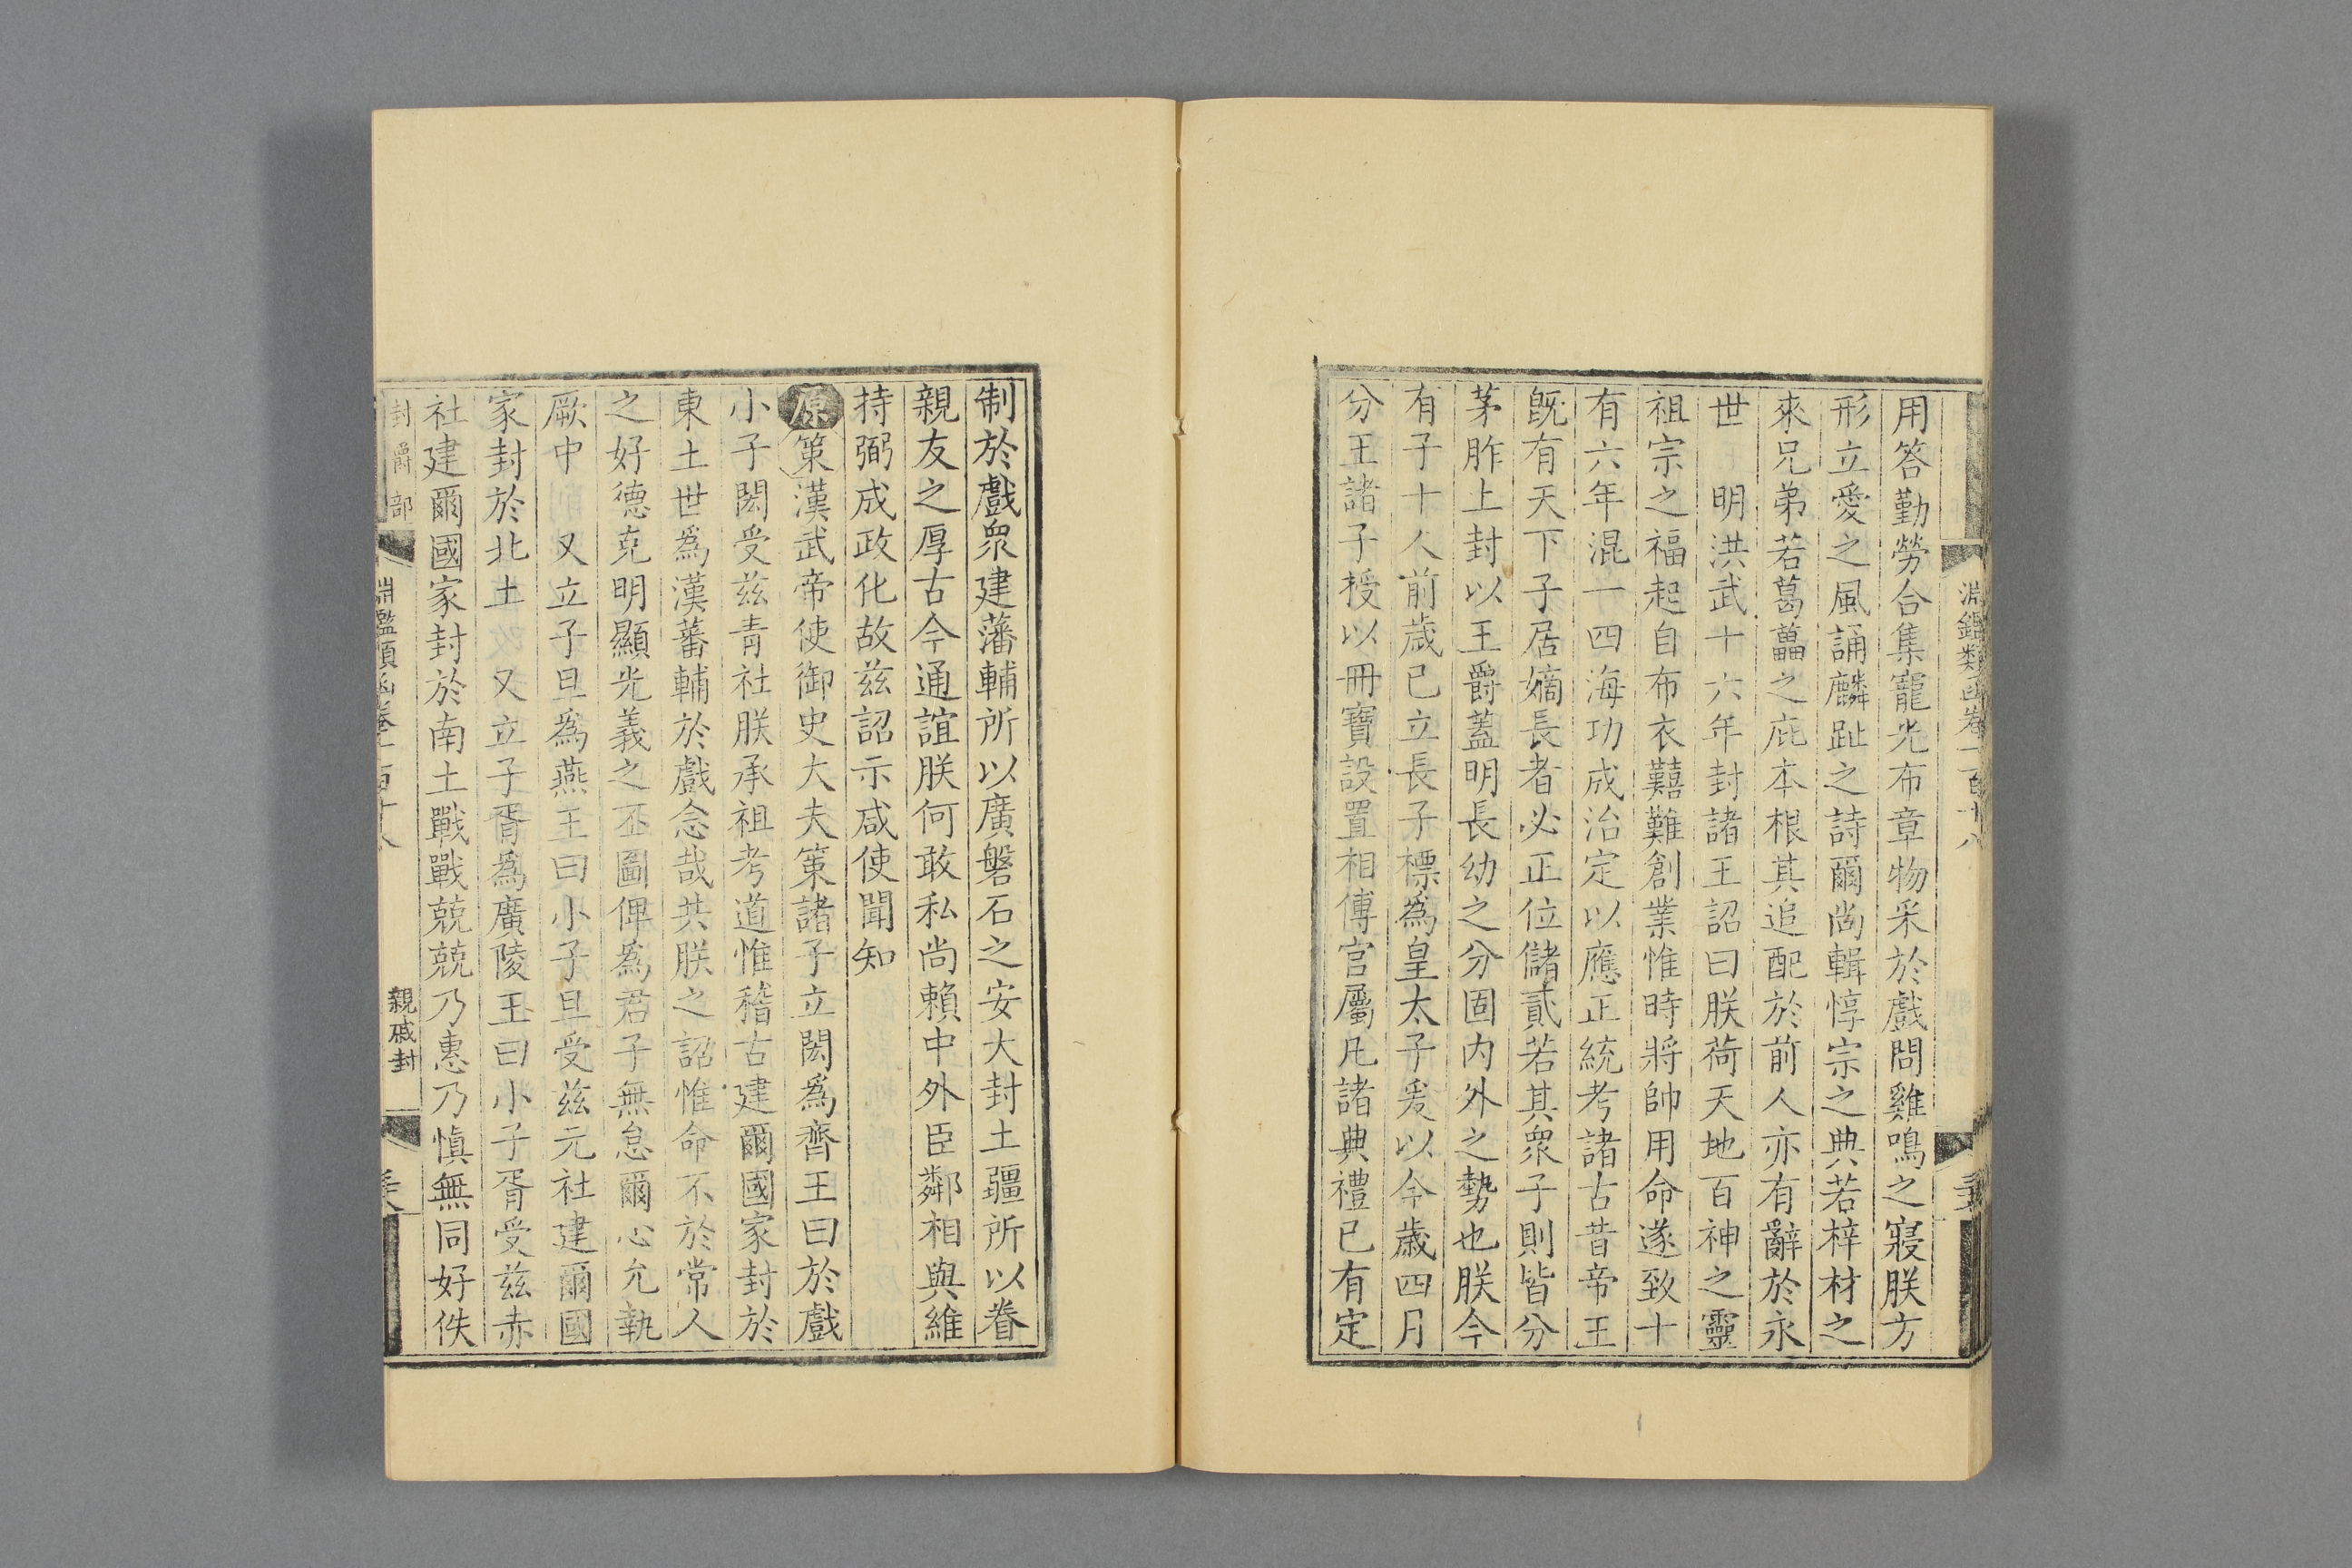 淵鑑類函卷一百十八
用答勤勞合集寵光布章物采於戲問雞鳴之寢朕方
形立愛之風誦麟趾之詩爾尚輯惇宗之典若梓材之
來兄弟若葛藟之庇本根其追配於前人亦有辭於永
世 明洪武十六年封諸王詔曰朕荷天地百神之靈
祖宗之福起自布衣囏難創業惟時將帥用命遂致十
有六年混一四海功成治定以應正統考諸古昔帝王
旣有天下子居嫡長者必正位儲貳若其衆子則皆分
茅胙土封以王爵蓋明長幼之分固内外之勢也朕今
有子十人前歲已立長子標爲皇太子爰以今歲四月
分王諸子授以冊寶設置相傅官屬凡諸典禮已有定
制於戲衆建藩輔所以廣磐石之安大封土疆所以眷
親友之厚古今通誼朕何敢私尚賴中外臣鄰相與維
持弼成政化故兹詔示咸使聞知
原策漢武帝使御史大夫策諸子立閎爲齊王曰於戲
小子閎受兹青社朕承祖考道惟稽古建爾國家封於
東土世爲漢蕃輔於戲念哉共朕之詔惟命不於常人
之好德克明顯光義之丕圖俾爲君子無怠爾心允執
厥中 又立子旦爲燕王曰小子旦受兹元社建爾國
家封於北土 又立子胥爲廣陵王曰小子胥受兹赤
社建爾國家封於南土戰戰兢兢乃惠乃愼無同好佚
封爵部 淵鑑類函卷一百十八 親戚封